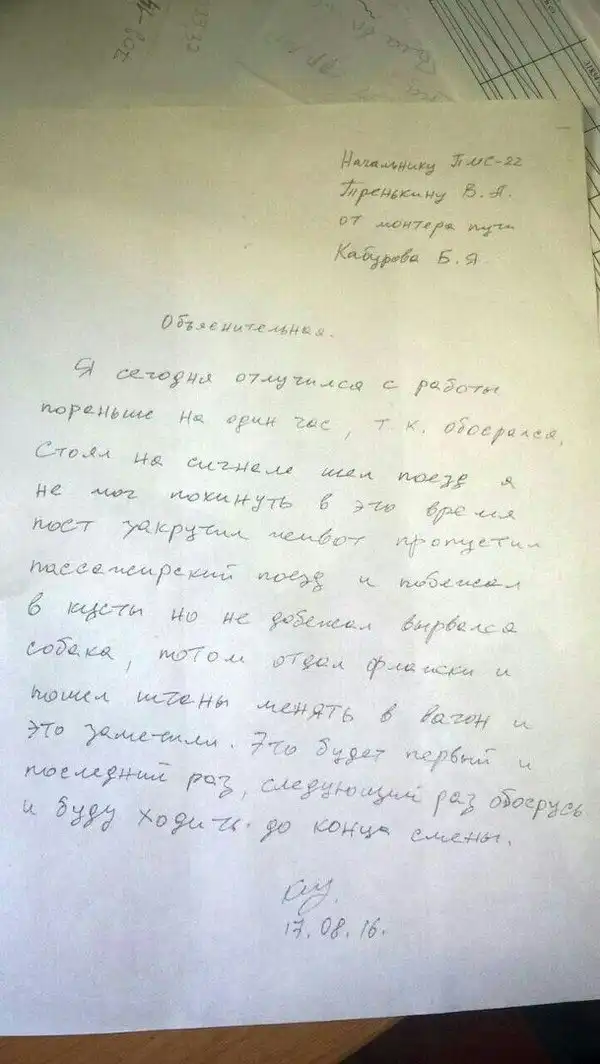 Начальнику ПМС-22
Тренькину В. А.
от монтера пути
Кабурова Б. Я
Объяснительная.
Я сегодня отлучился с работы
пораньше на один час, т. к. обосрался.
Стоял на сигнале шел поезд я
не мог покинуть в это время
пост закрутил живот пропустил
пассажирский поезд и побежал
в кусты но не добежал вырвалса
собака, потом отдал флажки и
пошел штаны менять в вагон и
это заметили. Это будет первый и
последний раз, следующий раз обосрусь
и буду ходить до конца смены.
17.08.16.